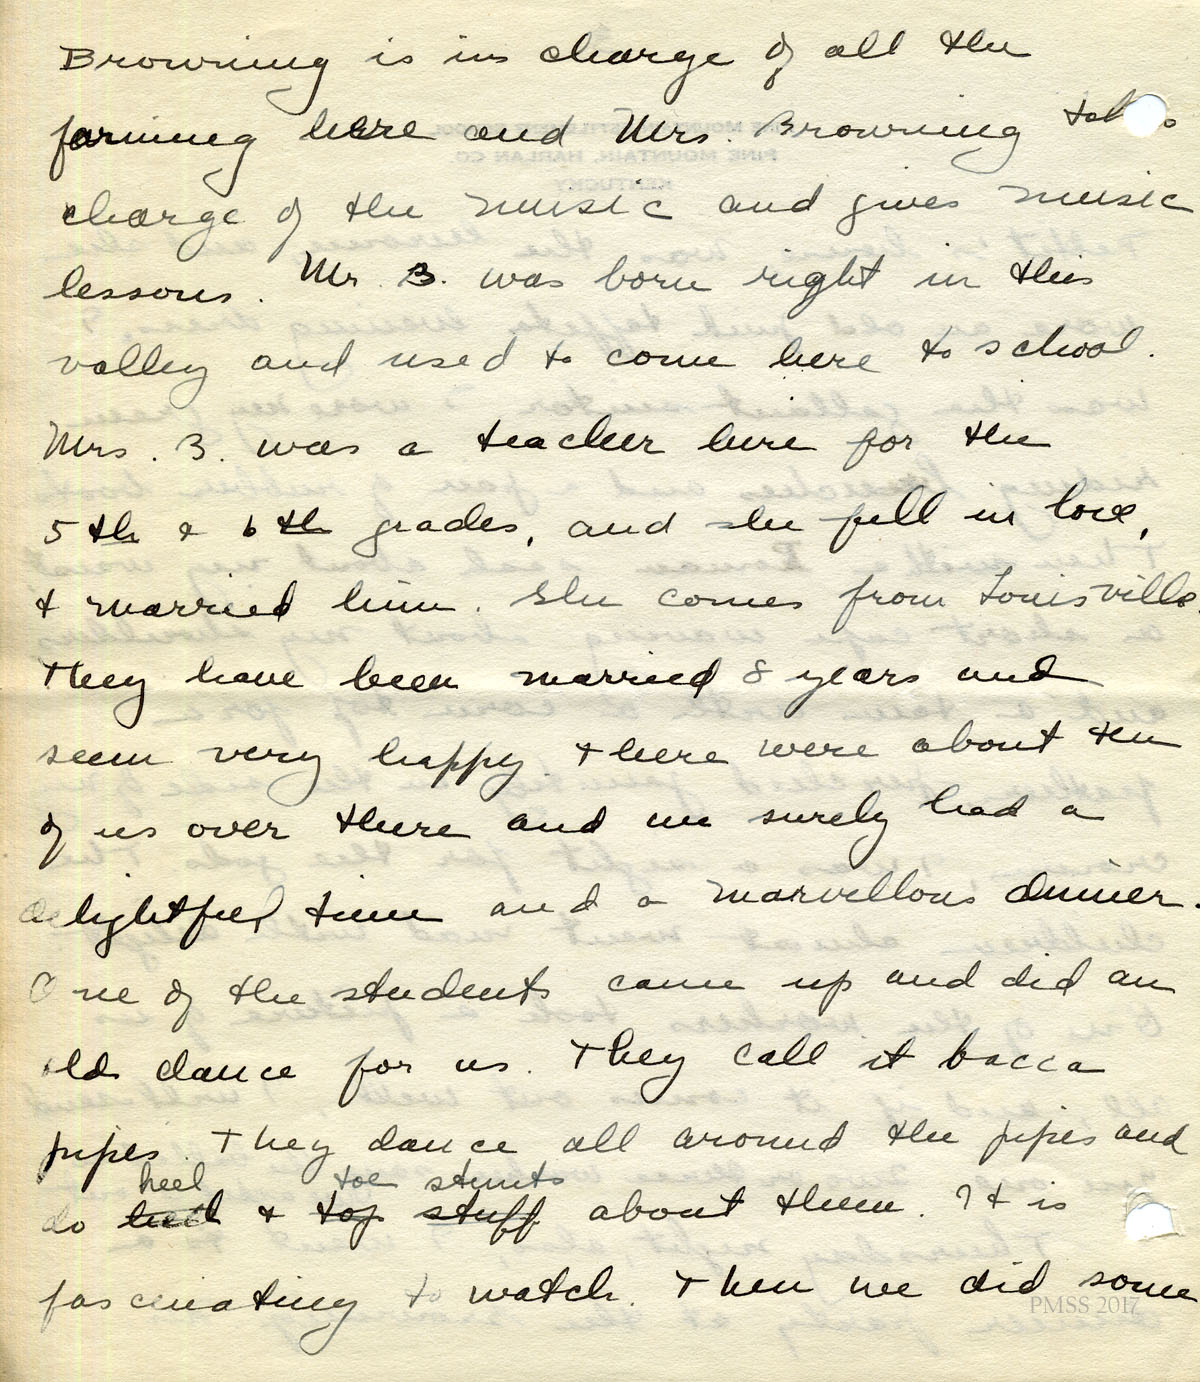 Browning is in charge of all the
farming here and Mrs. Browning
charge of the music and gives music
lessons. Mr. B. was born right in this
valley and used to come here to school.
Mrs. B. was a teacher here for the
5th & 6th grades, and she fell in love,
& married him. She comes from Louisville.
They have been married 8 years and
seem very happy. There were about ten
of us over there and we surely had a
delightful time and a marvellous dinner.
One of the students came up and did an
old dance for us. They call it bacca
pipes. They dance all around the pipes and
heel toe stunts
do & top stuff about them. It is
fascinating to watch. Then we did some
PMSS 2017